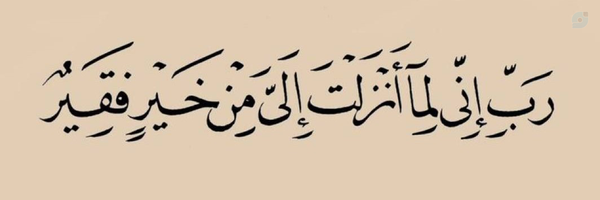 رَبِّ إِنِّى لِمَآ أَنْزَلْتَ إِلَىَّ مِنْ خَيْرٍ فَقِيرٌ